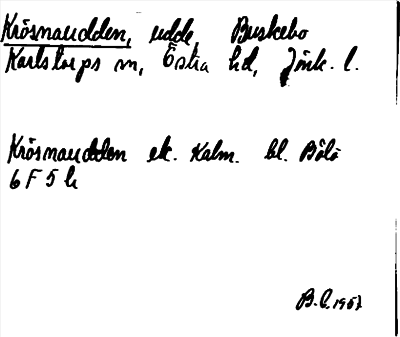 Krösnaudden, udde, Buskebo
Karlstorps sn, Östra hd, Jönk. l.
Krösnaudden ek. Kalm. bl. Bölö
6 F 5 h
B.L. 1957